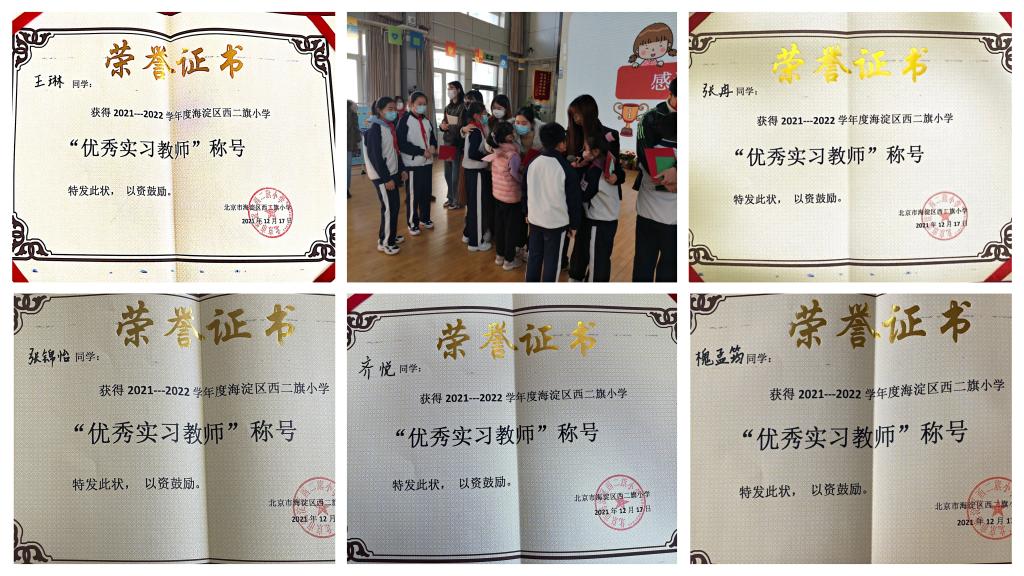 荣誉证书
王琳 同学：
获得 2021---2022 学年度海淀区西二旗小学
“优秀实习教师”称号
特发此状， 以资鼓励。
北京市海淀区西二旗小学
2021 年 12 月 17 日
感
荣誉证书
张冉 同学：
获得 2021---2022 学年度海淀区西二旗小学
“优秀实习教师”称号
特发此状， 以资鼓励。
北京市海淀区西二旗小学
2021 年 12 月 17 日
荣誉证书
张锦怡 同学：
获得 2021---2022 学年度海淀区西二旗小学
“优秀实习教师”称号
特发此状， 以资鼓励。
北京市海淀区西二旗
2021 年 12 月
荣誉证书
齐悦 同学：
获得 2021---2022 学年度海淀区西二旗小学
“优秀实习教师”称号
特发此状， 以资鼓励。
北京市海淀区西二旗小学
2021 年 12 月 17 日
荣誉证书
槐孟筠 同学：
获得 2021---2022 学年度海淀区西二旗小学
“优秀实习教师”称号
特发此状， 以资鼓励。
北京市海淀区西二旗小
2021 年 12 月 17